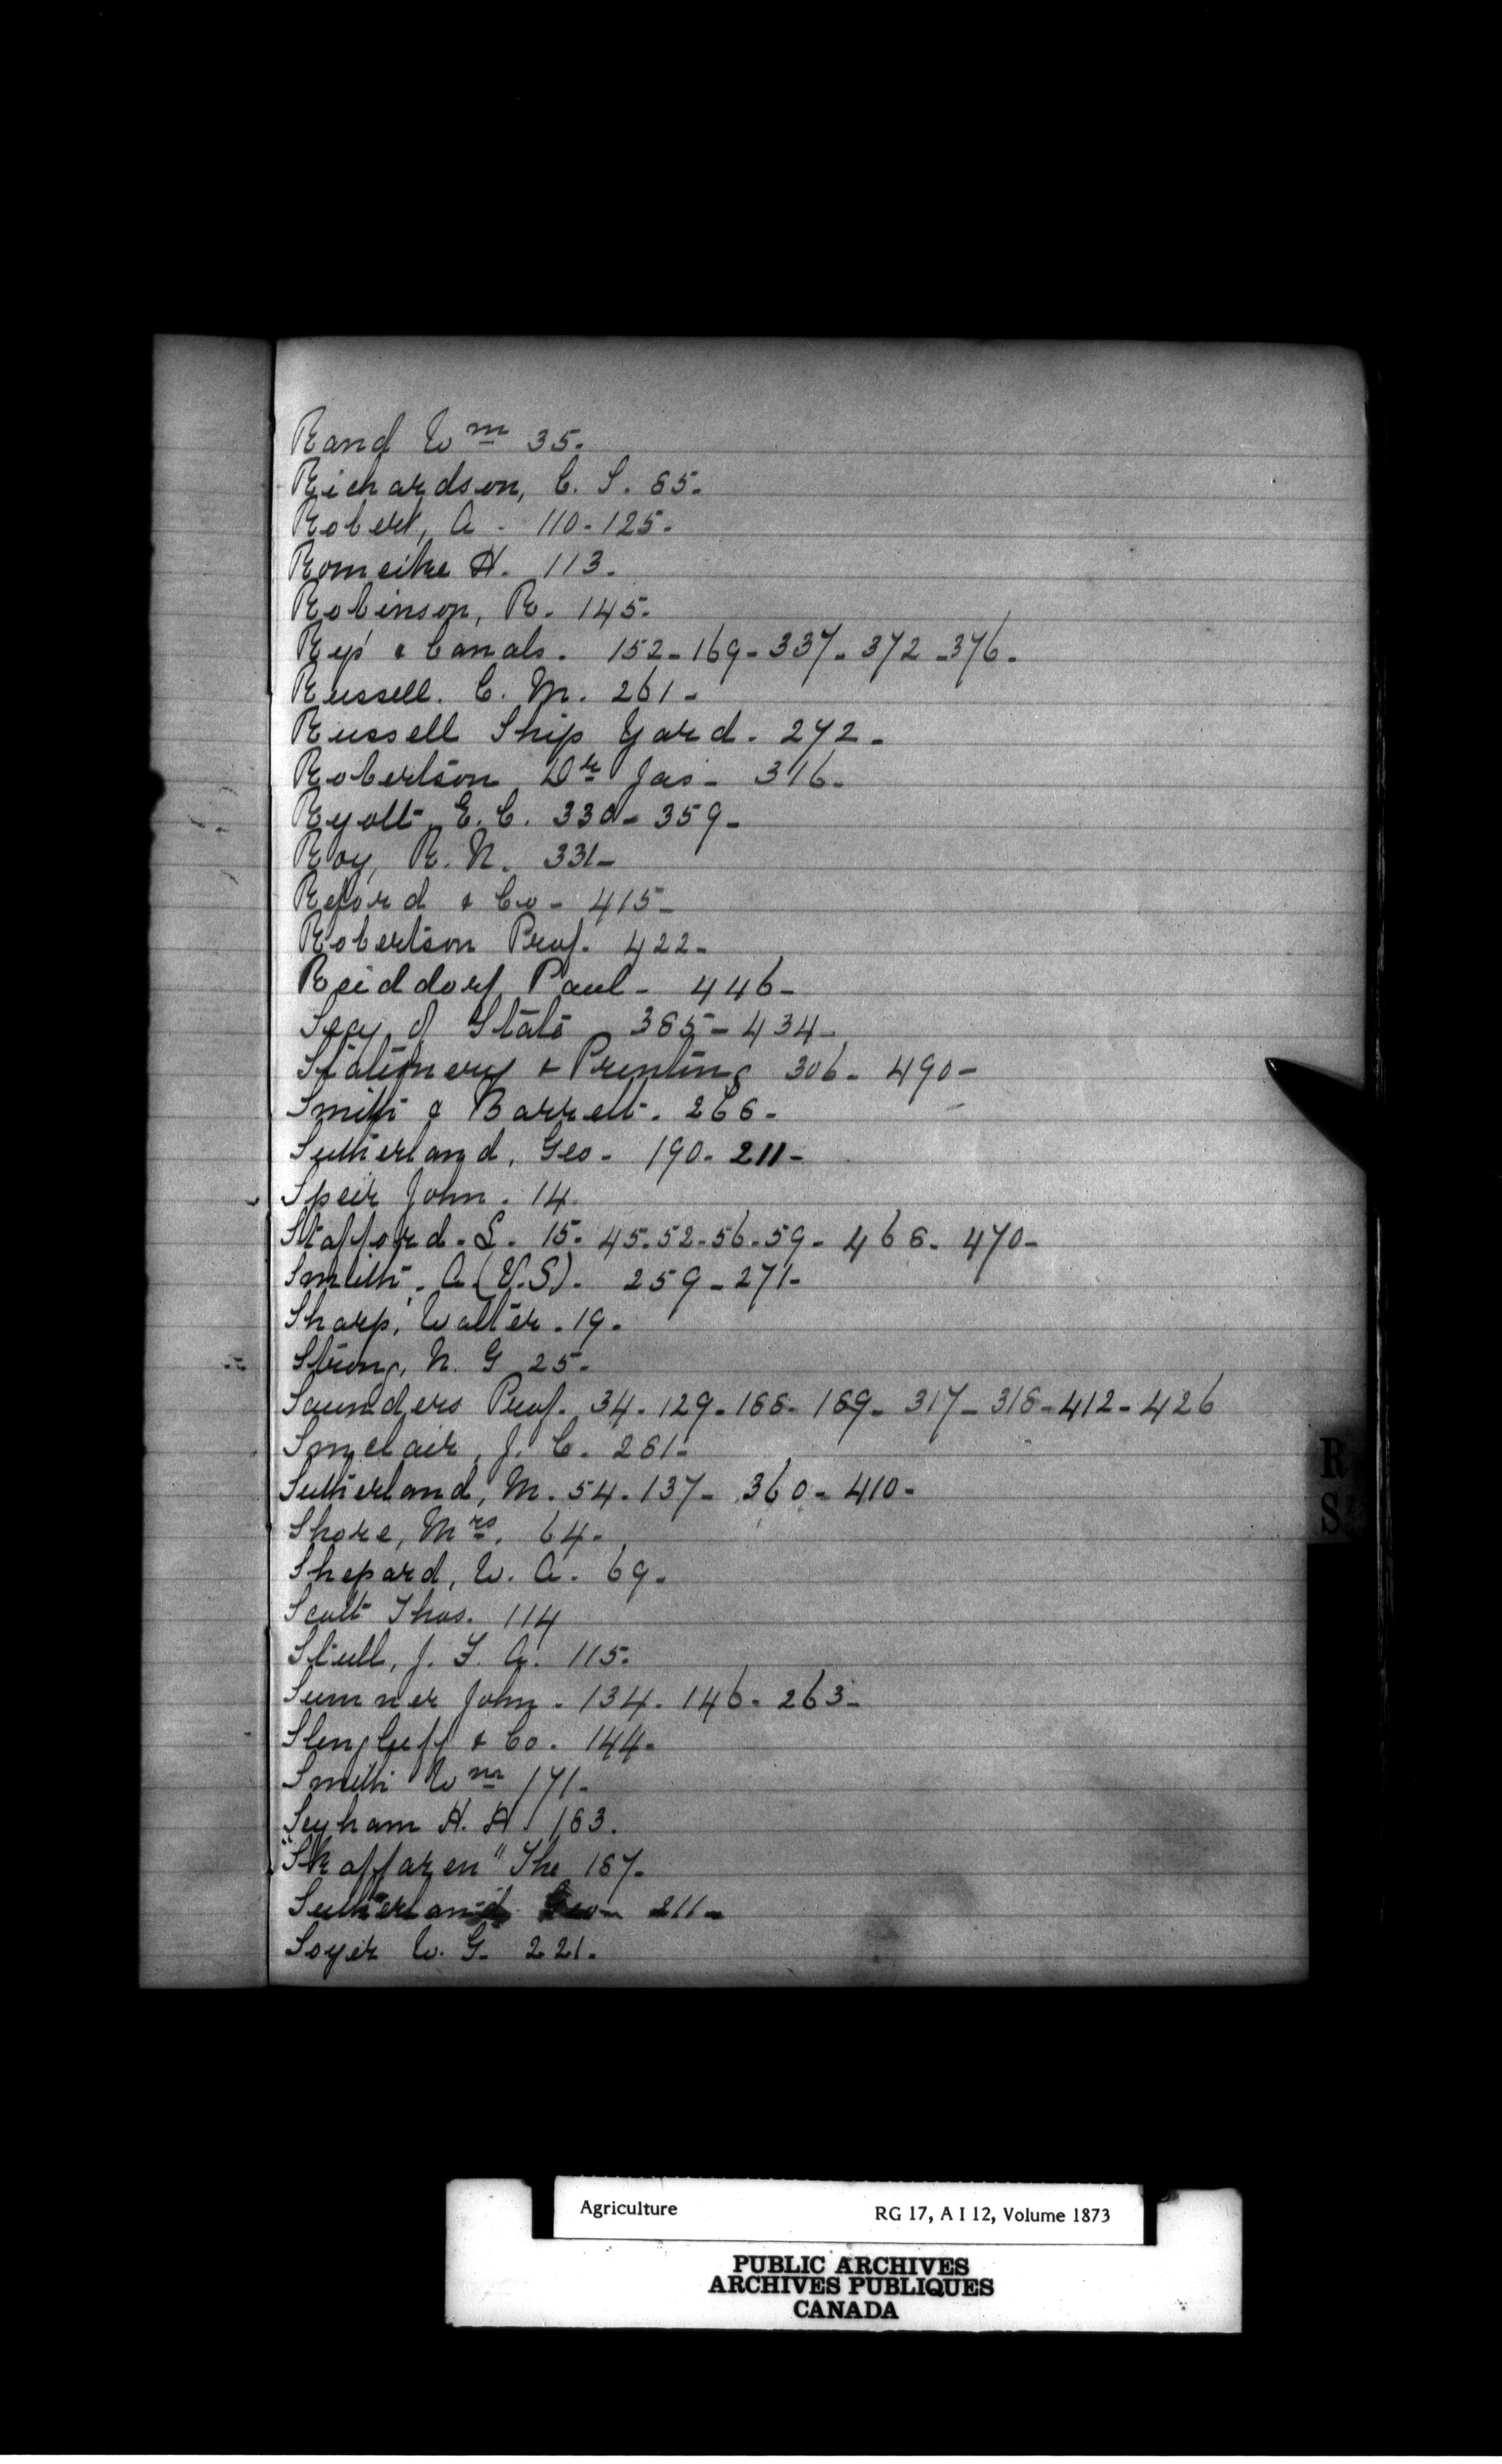 Rand Wm 35.
Richardson, C. S. 85.
Robert, A. 110-125.
Romeike H. 113.
Robinson, R. 145.
Rys & Canals. 152-169-337-372-376.
Russell. C. M. 261-
Russell Ship Yard. 272-
Robertson Dr Jas- 316-
Ryott, E. C. 330-359-
Roy, R. N. 331-
Reford & Co- 415-
Robertson Prof. 422-
Reiddorf Paul- 446-
Secy of State 385-434-
Stationery & Printing 306-490-
Smith & Barrett. 266-
Sutherland, Geo- 190-211-
Speir John. 14.
Stafford. L. 15-45-52-56-59-468-470-
Smith, A. (V.S). 259-271-
Sharp, Walter. 19.
Strong, N. G 25-
Saunders Prof. 34-129-188-189-317-318-412-426
Sinclair, J. C. 281-
Sutherland, M. 54-137-360-410-
Shore, Mrs, 64-
Shepard, W. A. 69-
Scott Thos. 114
Stull, J. F. A. 115.
Sumner John. 134-146-263-
Slingluff & Co. 144-
Smith Wm 171-
Seyham H. H. 183.
"Skaffaren" The 187-
Sutherland Geo- 211-
Soyer W. G- 221-
R
S
Agriculture RG 17, A I 12, Volume 1873
PUBLIC ARCHIVES
ARCHIVES PUBLIQUES
CANADA